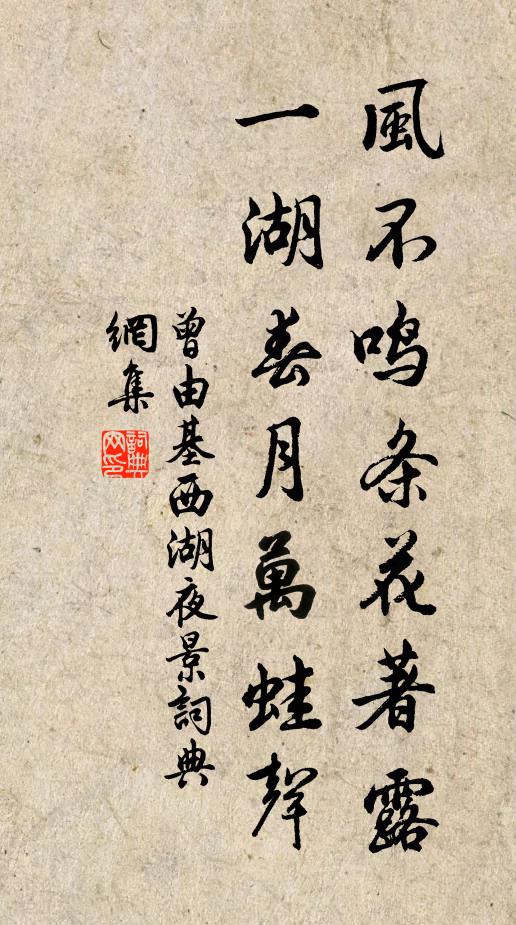 風不鳴条花著露
一湖春月萬蛙聲
曾由基西湖夜景詞典
網集
詞典
网印